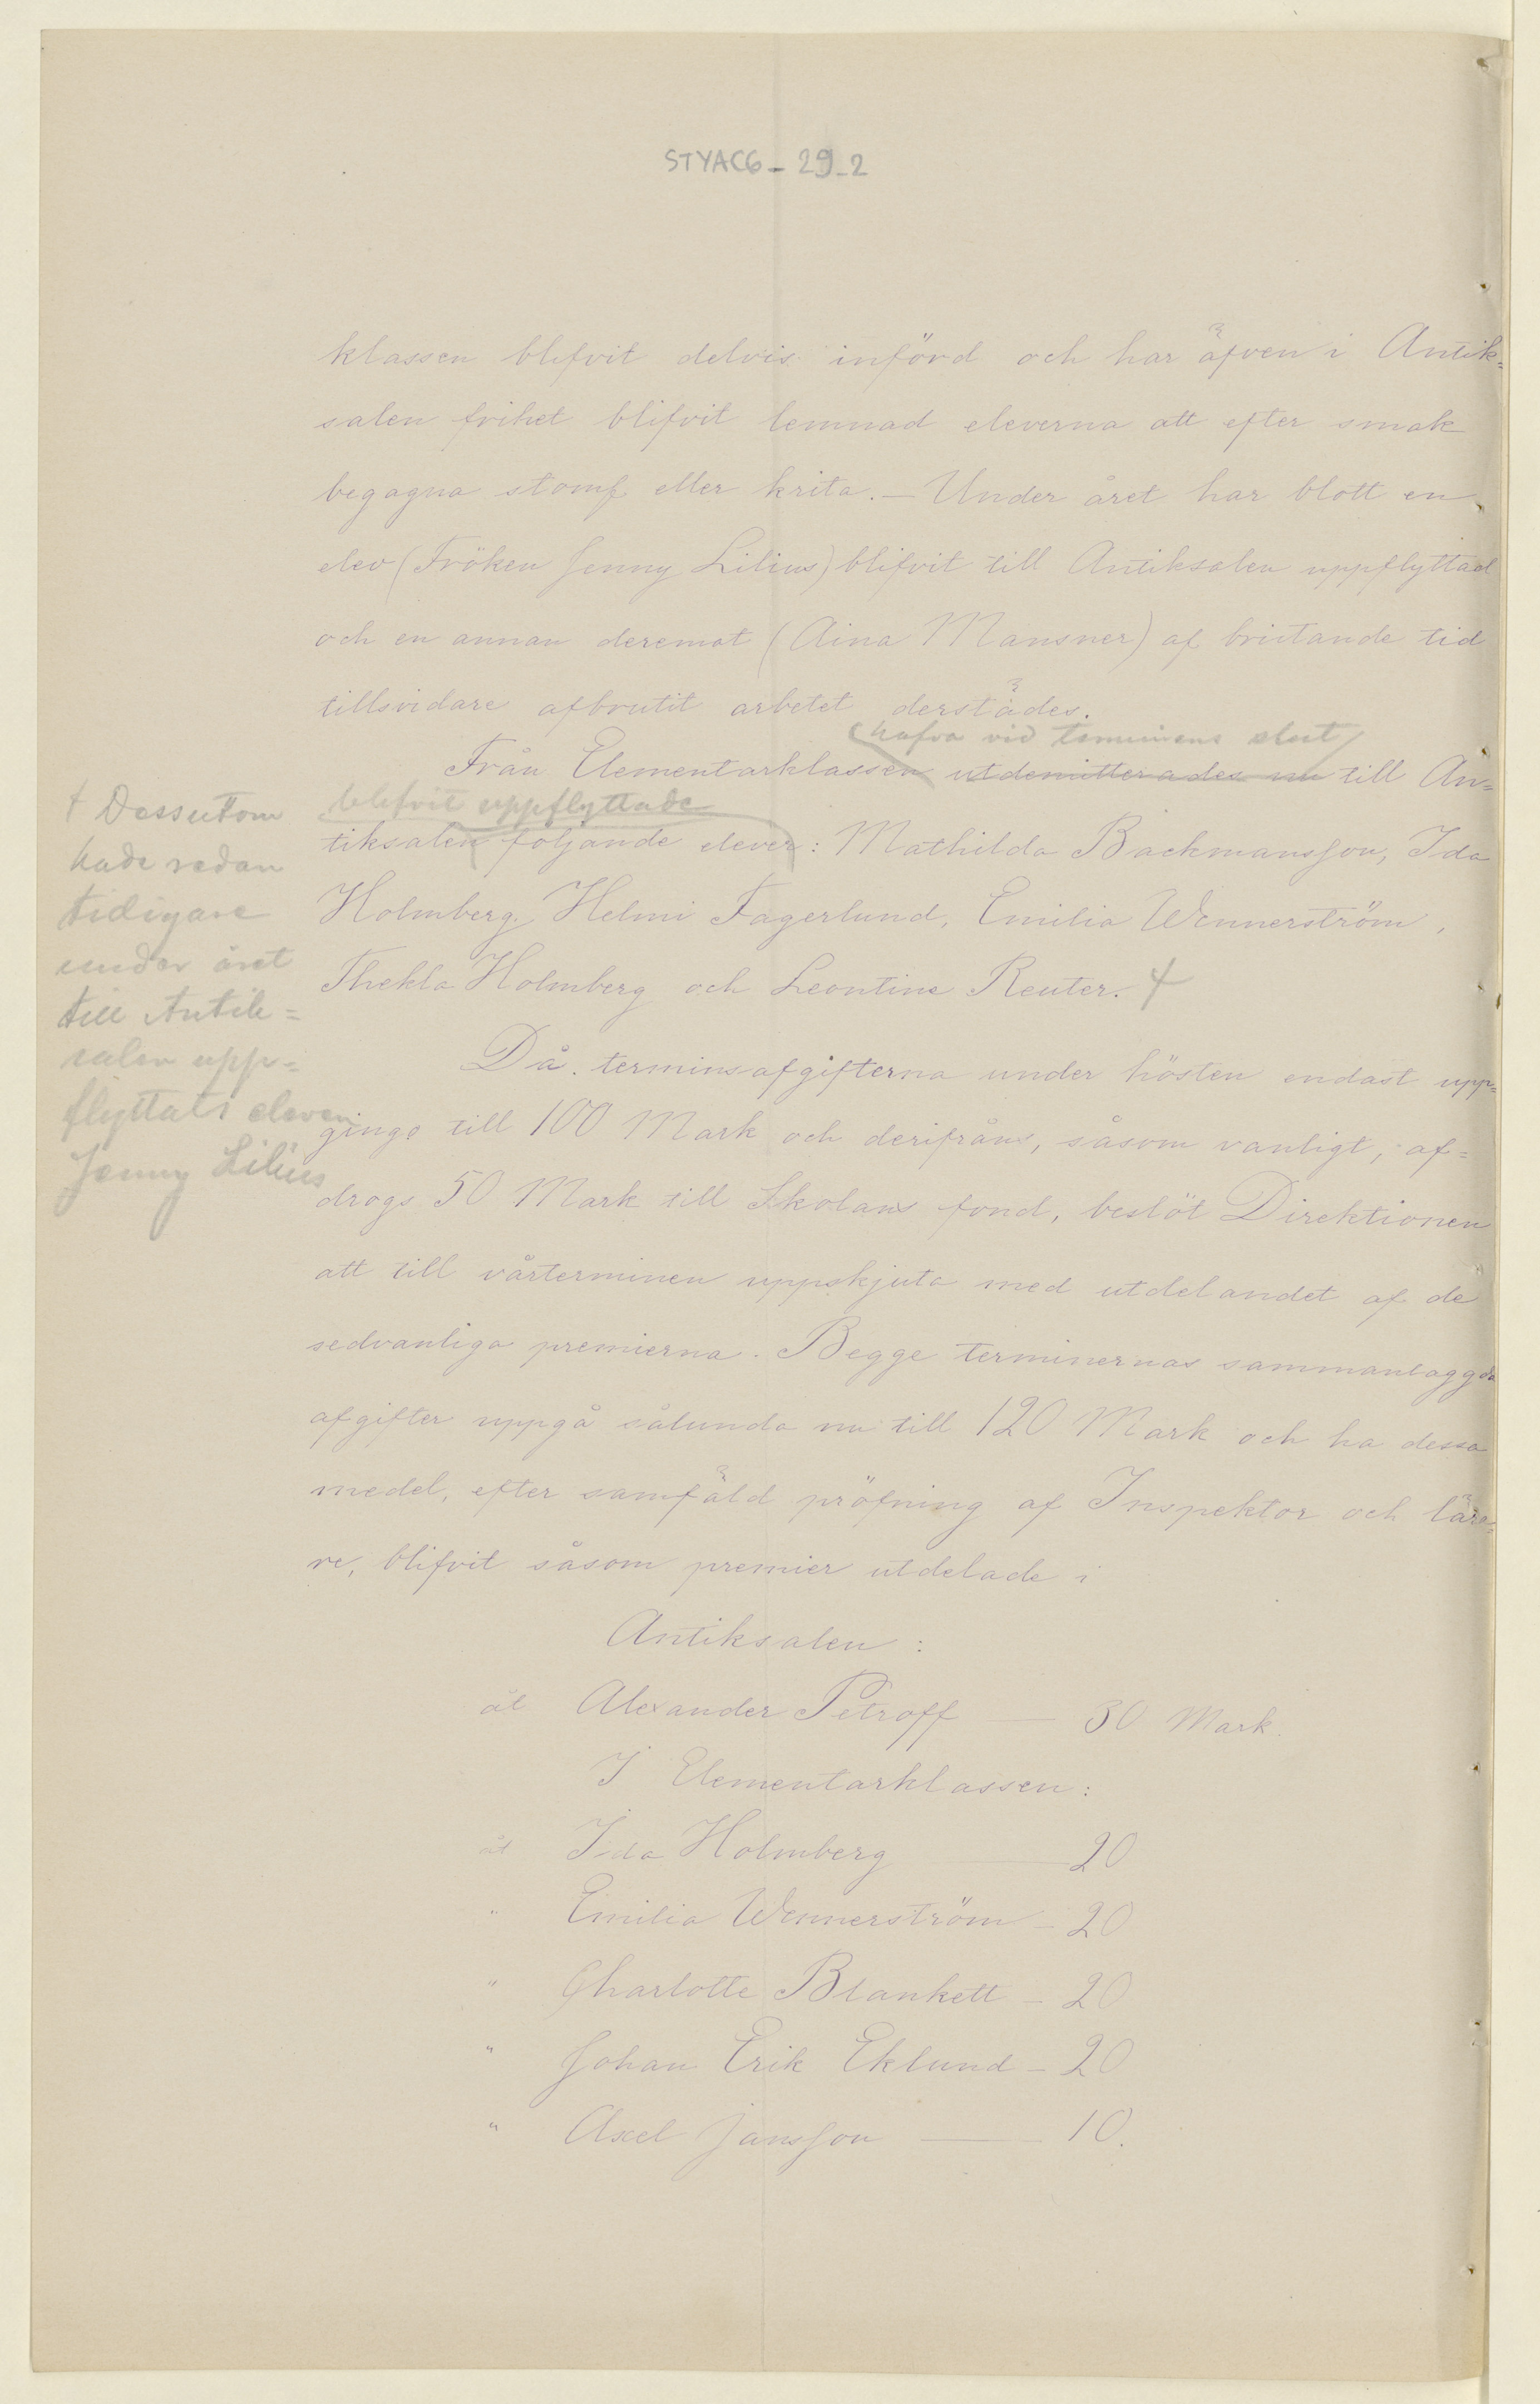 STYAC6-29-2
klassen blifvit delvis införd och har äfven i Antik=
salen frihet blifvit lemnad eleverna att efter smak
begagna stomf eller krita. — Under året har blott en
elev (Fröken Jenny Lilius) blifvit till Antiksalen uppflyttad
och en annan deremot (Aina Mansner) af bristande tid
tillsvidare afbrutit arbetet derstädes.
hafva vid terminens slut
Från Elementarklassen utdemitterades nu till An=
blifvit uppflyttade
tiksalen följande elever: Mathilda Backmansson, Ida
Holmberg, Helmi Fagerlund, Emilia Wennerström,
Thekla Holmberg och Leontine Reuter. +
+ Dessutom
hade redan
tidigare
under året
till Antik=
salen upp=
flyttats eleven
Jenny Lilius
Då terminsafgifterna under hösten endast upp=
gingo till 100 Mark och derifrån, såsom vanligt, af=
drogs 50 Mark till Skolans fond, beslöt Direktionen
att till vårterminen uppskjuta med utdelandet af de
sedvanliga premierna. Begge terminernas sammanlagda
afgifter uppgå sålunda nu till 120 Mark och ha dessa
medel, efter samfäld pröfning af Inspektor och lära=
re, blifvit såsom premier utdelade i
Antiksalen:
åt Alexander Petroff — 30 Mark.
I Elementarklassen:
åt Ida Holmberg — 20
" Emilia Wennerström — 20
" Charlotte Blankett — 20
" Johan Erik Eklund — 20
" Axel Jansson — 10.